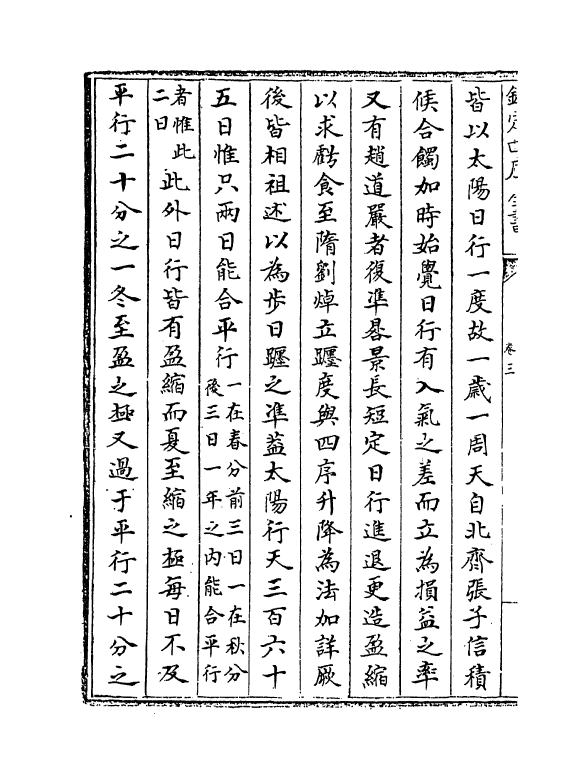 皆以太陽日行一度故一歲一周天自北齊張子信積
候合蝕加時始覺日行有入氣之差而立為損益之率
又有趙道嚴者復準晷景長短定日行進退更造盈縮
以求虧食至隋劉焯立躔度與四序升降為法加詳厥
後皆相祖述以為步日躔之準蓋太陽行天三百六十
五日惟只兩日能合平行一在春分前三日一在秋分
後三日一年之内能合平行
者惟此
二日此外日行皆有盈縮而夏至縮之極每日不及
平行二十分之一冬至盈之極又過于平行二十分之
卷三